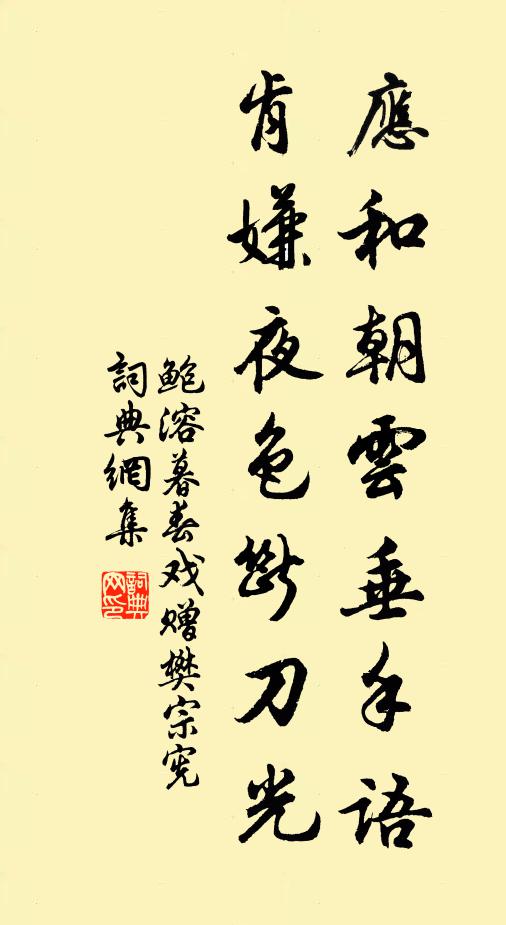 應和朝雲垂手語
肯嫌夜色斷刀光
鮑溶暮春戏赠樊宗宪
詞典網集
詞典網印